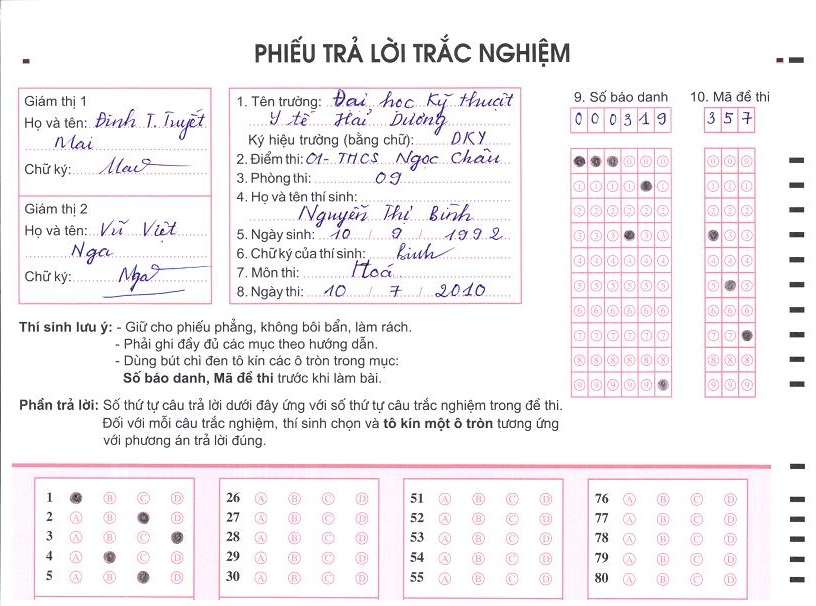 PHIẾU TRẢ LỜI TRẮC NGHIỆM
Giám thị 1
Họ và tên: Đinh T. Tuyết
Mai
Chữ ký: Mai
Giám thị 2
Họ và tên: Vũ Việt
Nga
Chữ ký: Nga
1. Tên trường: Đại học Kỹ thuật
Y tế Hải Dương
Ký hiệu trường (bằng chữ): DKY
2. Điểm thi: 01- THCS Ngọc Châu
3. Phòng thi: 09
4. Họ và tên thí sinh:
Nguyễn Thị Bình
5. Ngày sinh: 10 / 9 / 1992
6. Chữ ký của thí sinh: Bình
7. Môn thi: Hoá
8. Ngày thi: 10 / 7 / 2010
9. Số báo danh
000319
10. Mã đề thi
357
Thí sinh lưu ý: - Giữ cho phiếu phẳng, không bôi bẩn, làm rách.
- Phải ghi đầy đủ các mục theo hướng dẫn.
- Dùng bút chì đen tô kín các ô tròn trong mục:
Số báo danh, Mã đề thi trước khi làm bài.
Phần trả lời: Số thứ tự câu trả lời dưới đây ứng với số thứ tự câu trắc nghiệm trong đề thi.
Đối với mỗi câu trắc nghiệm, thí sinh chọn và tô kín một ô tròn tương ứng
với phương án trả lời đúng.
1 B C D
2 A B D
3 A B C
4 A C D
5 A B D
26 A B C D
27 A B C D
28 A B C D
29 A B C D
30 A B C D
51 A B C D
52 A B C D
53 A B C D
54 A B C D
55 A B C D
76 A B C D
77 A B C D
78 A B C D
79 A B C D
80 A B C D